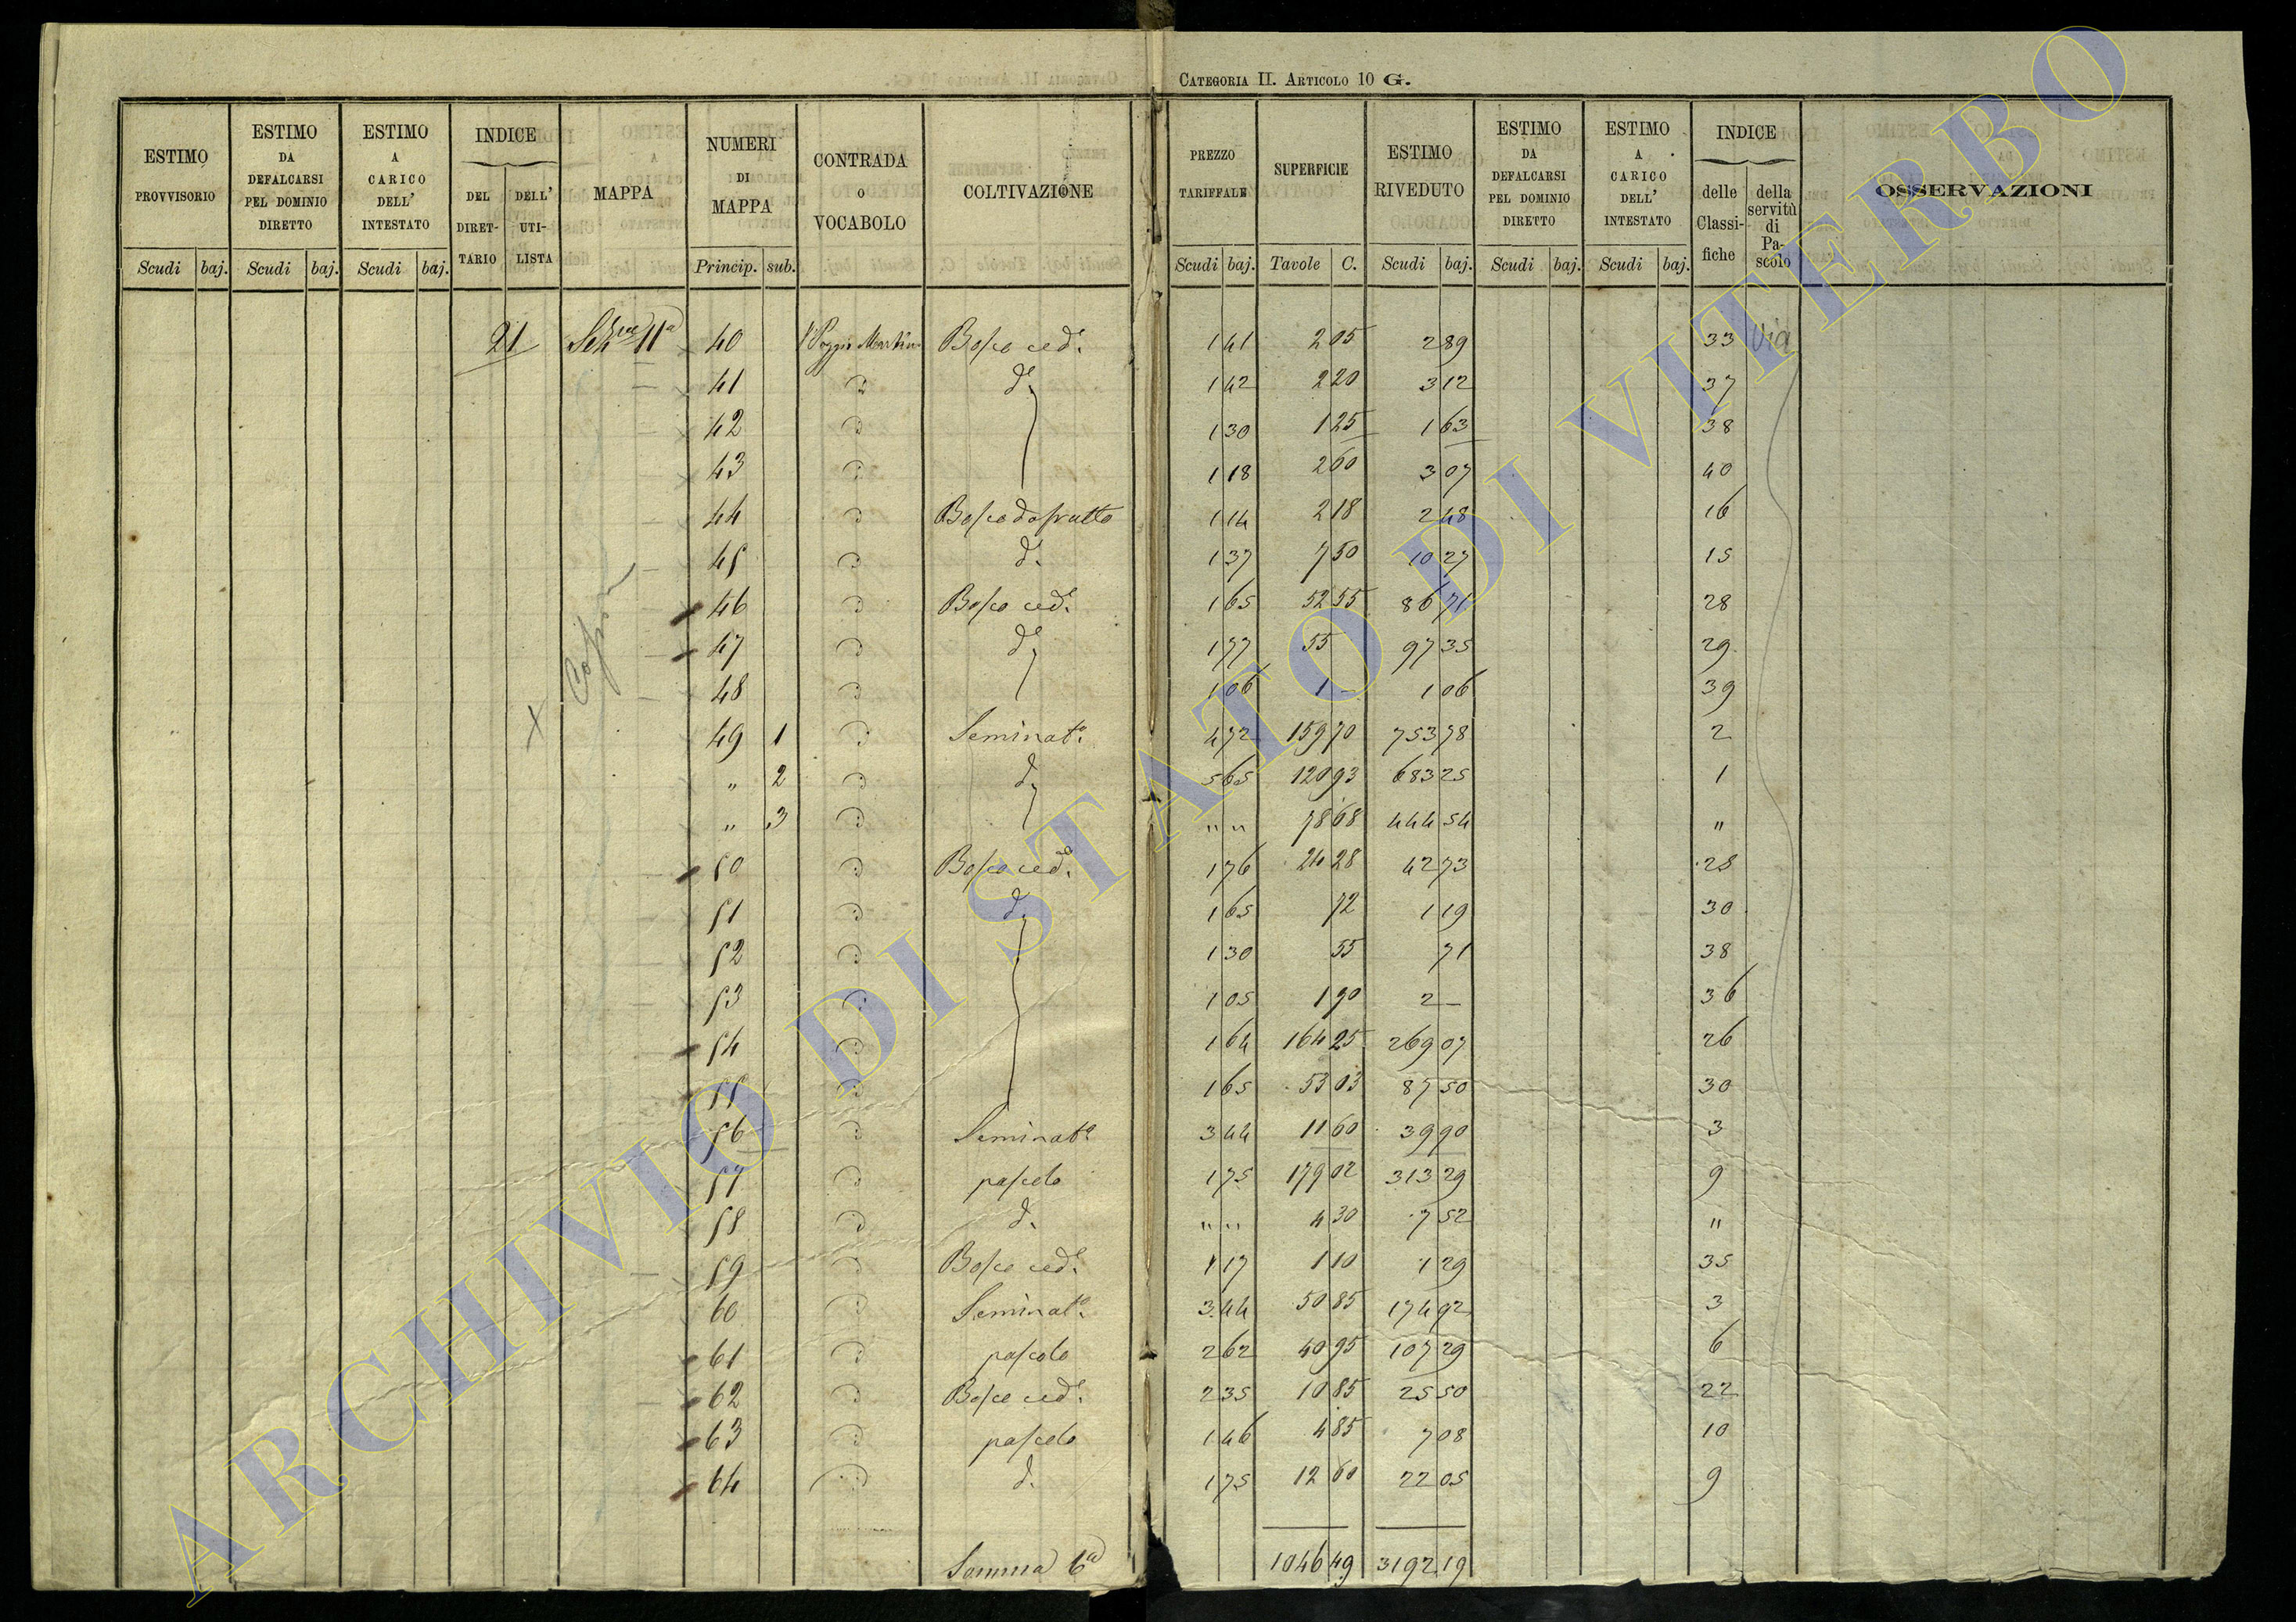 CATEGORIA II. ARTICOLO 10 G.
ESTIMO PROVVISORIO | ESTIMO DA DEFALCARSI PEL DOMINIO DIRETTO | ESTIMO A CARICO DELL' INTESTATO | INDICE | MAPPA | NUMERI DI MAPPA | CONTRADA O VOCABOLO | COLTIVAZIONE | PREZZO TARIFFALE | SUPERFICIE | ESTIMO RIVEDUTO | ESTIMO DA DEFALCARSI PEL DOMINIO DIRETTO | ESTIMO A CARICO DELL' INTESTATO | INDICE | OSSERVAZIONI
DEL DIRETTARIO | DELL' UTILISTA | delle Classifiche | della servitù di Pascolo
Scudi | baj. | Scudi | baj. | Scudi | baj. | Princip. | sub. | Scudi | baj. | Tavole | C. | Scudi | baj. | Scudi | baj. | Scudi | baj.
21 | Sez.ne 11a | 40 | Poggio Martino | Bosco ced. | 1 41 | 2 05 | 2 89 | 33 | Via
41 | d. | 1 42 | 2 20 | 3 12 | 37
42 | 1 30 | 1 25 | 1 63 | 38
43 | 1 18 | 2 60 | 3 07 | 40
44 | Bosco da frutto | 1 14 | 2 18 | 2 48 | 16
45 | d. | 1 37 | 7 50 | 10 27 | 15
46 | Bosco ced. | 1 65 | 52 55 | 86 71 | 28
47 | d. | 1 77 | 55 | 97 35 | 29
48 | 1 06 | 1 – | 1 06 | 39
49 | 1 | Seminat.o | 4 72 | 159 70 | 753 78 | 2
" | 2 | d. | 5 65 | 120 93 | 683 25 | 1
" | 3 | " " | 78 68 | 444 54 | "
50 | Bosco ced. | 1 76 | 24 28 | 42 73 | 28
51 | d. | 1 65 | 72 | 1 19 | 30
52 | 1 30 | 55 | 71 | 38
53 | 1 05 | 1 90 | 2 – | 36
54 | 1 64 | 164 25 | 269 07 | 26
55 | 1 65 | 53 03 | 87 50 | 30
56 | Seminat.o | 3 44 | 11 60 | 39 90 | 3
57 | pascolo | 1 75 | 179 02 | 313 29 | 9
58 | d. | " " | 4 30 | 7 52 | "
59 | Bosco ced. | 1 17 | 1 10 | 1 29 | 35
60 | Seminat.o | 3 44 | 50 85 | 174 92 | 3
61 | pascolo | 2 62 | 40 95 | 107 29 | 6
62 | Bosco ced. | 2 35 | 10 85 | 25 50 | 22
63 | pascolo | 1 46 | 4 85 | 7 08 | 10
64 | d. | 1 75 | 12 60 | 22 05 | 9
Somma 6a | 1046 49 | 3192 19
ARCHIVIO DI STATO DI VITERBO